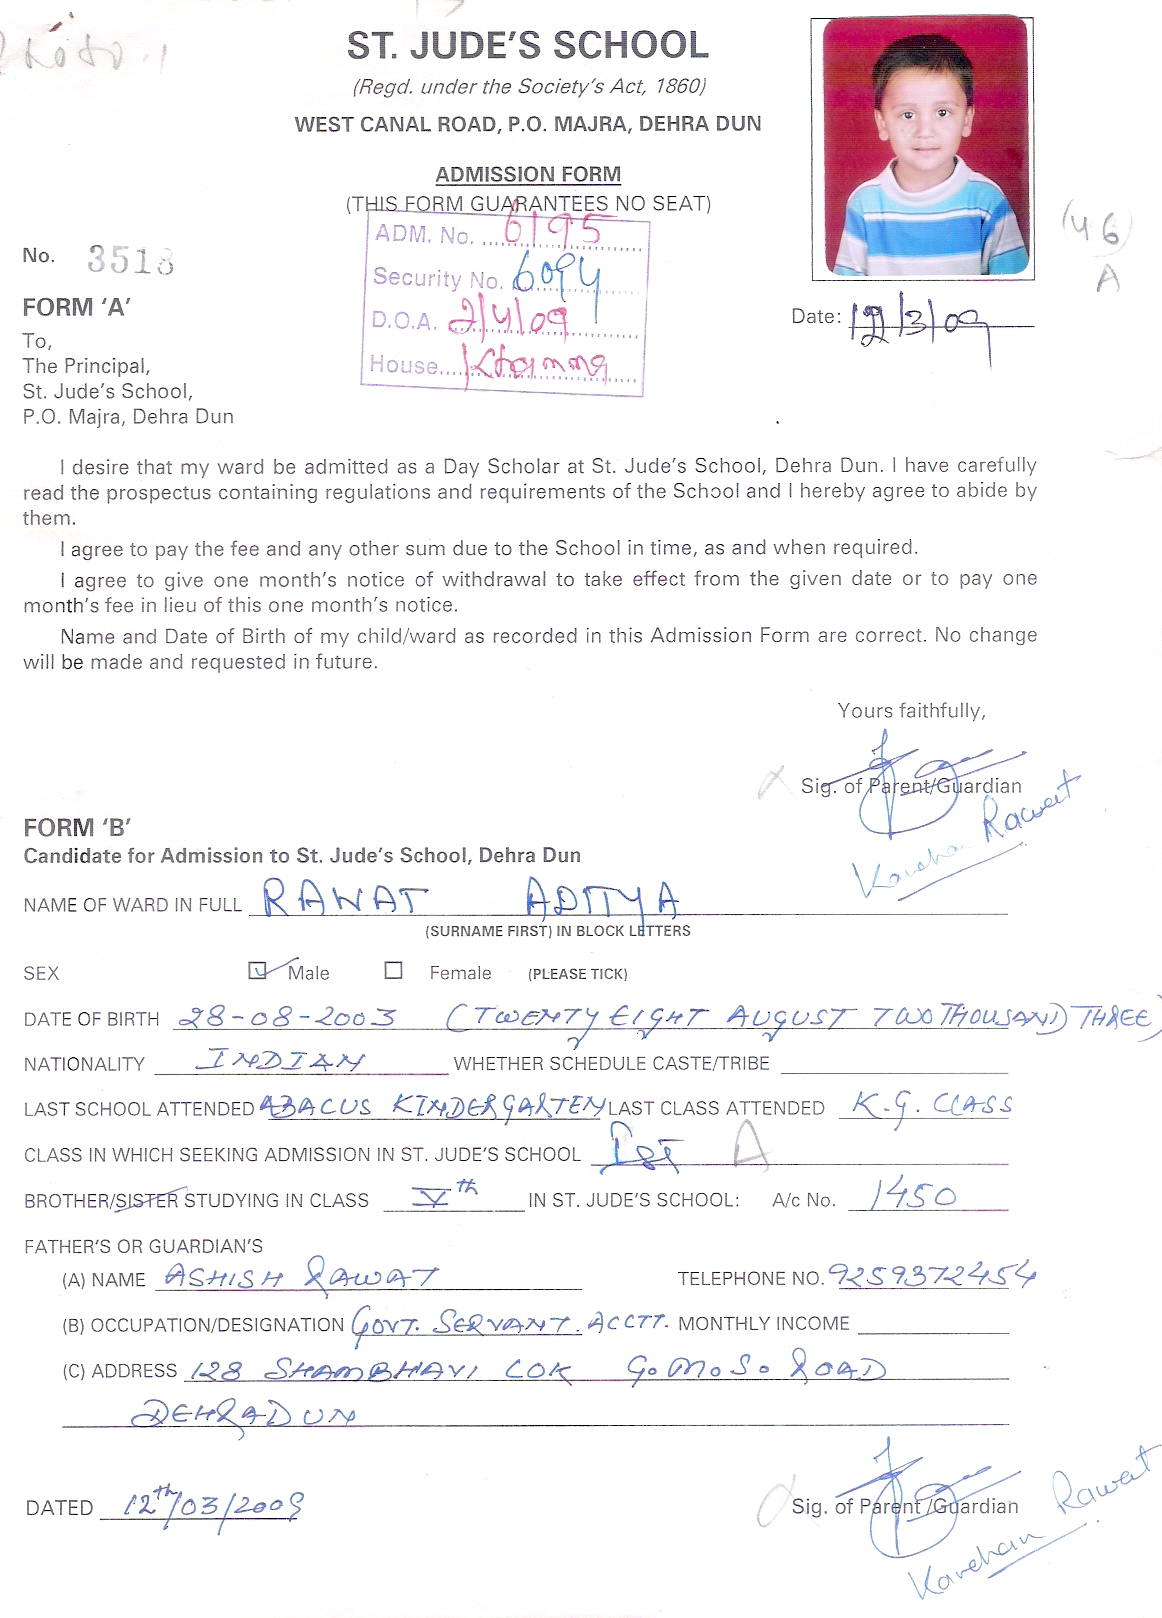 ST. JUDE'S SCHOOL
(Regd. under the Society's Act, 1860)
WEST CANAL ROAD, P.O. MAJRA, DEHRA DUN
ADMISSION FORM
(THIS FORM GUARANTEES NO SEAT)
ADM. No. 6195
Security No. 6094
D.O.A. 2/4/09
House
(46)
A
No. 3518
Date: 12/3/09
FORM 'A'
To,
The Principal,
St. Jude's School,
P.O. Majra, Dehra Dun
I desire that my ward be admitted as a Day Scholar at St. Jude's School, Dehra Dun. I have carefully
read the prospectus containing regulations and requirements of the School and I hereby agree to abide by
them.
I agree to pay the fee and any other sum due to the School in time, as and when required.
I agree to give one month's notice of withdrawal to take effect from the given date or to pay one
month's fee in lieu of this one month's notice.
Name and Date of Birth of my child/ward as recorded in this Admission Form are correct. No change
will be made and requested in future.
Yours faithfully,
Sig. of Parent/Guardian
Rawat
FORM 'B'
Candidate for Admission to St. Jude's School, Dehra Dun
NAME OF WARD IN FULL RAWAT ADITYA
(SURNAME FIRST) IN BLOCK LETTERS
SEX Male Female (PLEASE TICK)
DATE OF BIRTH 28-08-2003 (TWENTY EIGHT AUGUST TWO THOUSAND THREE)
NATIONALITY INDIAN WHETHER SCHEDULE CASTE/TRIBE
LAST SCHOOL ATTENDED ABACUS KINDERGARTEN LAST CLASS ATTENDED K.G. CLASS
CLASS IN WHICH SEEKING ADMISSION IN ST. JUDE'S SCHOOL Ist A
BROTHER/SISTER STUDYING IN CLASS Vth IN ST. JUDE'S SCHOOL: A/c No. 1450
FATHER'S OR GUARDIAN'S
(A) NAME ASHISH RAWAT TELEPHONE NO. 9259372454
(B) OCCUPATION/DESIGNATION GOVT. SERVANT. ACCTT. MONTHLY INCOME
(C) ADDRESS 128 SHAMBHAVI LOK GOMOSO ROAD
DEHRADUN
DATED 12th/03/2009
Sig. of Parent /Guardian
Rawat